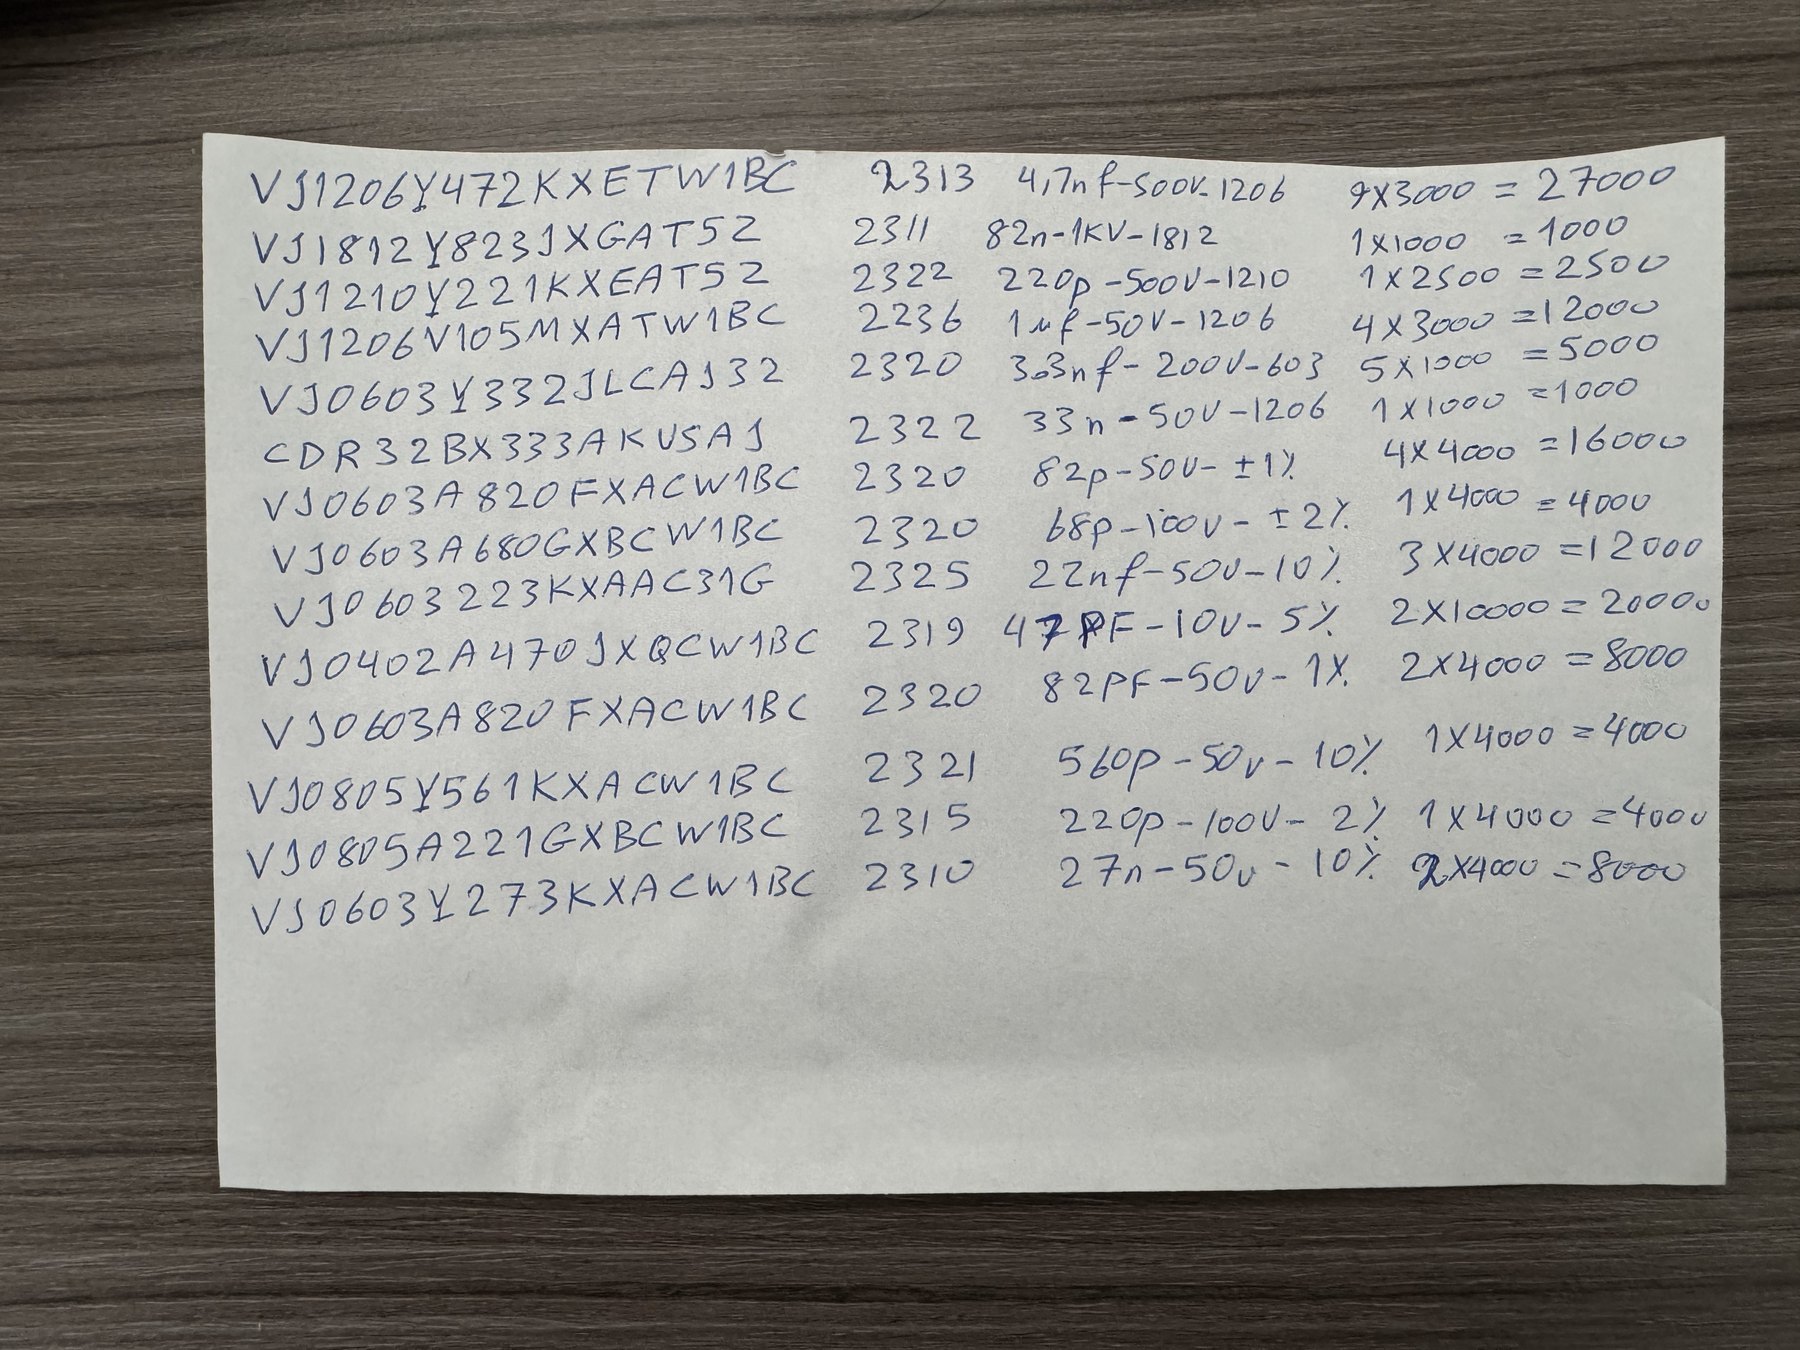 VJ1206Y472KXETW1BC 2313 4,7nf-500V-1206 9X3000 = 27000
VJ1812Y823JXGAT5Z 2311 82n-1KV-1812 1X1000 = 1000
VJ1210Y221KXEAT5Z 2322 220p-500V-1210 1X2500 = 2500
VJ1206V105MXATW1BC 2236 1µf-50V-1206 4X3000 = 12000
VJ0603Y332JLCAJ32 2320 3.3nf-200V-603 5X1000 = 5000
CDR32BX333AKUSAJ 2322 33n-50V-1206 1X1000 = 1000
VJ0603A820FXACW1BC 2320 82p-50V-±1% 4X4000 = 16000
VJ0603A680GXBCW1BC 2320 68p-100V-±2% 1X4000 = 4000
VJ0603223KXAAC31G 2325 22nf-50V-10% 3X4000 = 12000
VJ0402A470JXQCW1BC 2319 47PF-10V-5% 2X10000 = 20000
VJ0603A820FXACW1BC 2320 82PF-50V-1% 2X4000 = 8000
VJ0805Y561KXACW1BC 2321 560p-50V-10% 1X4000 = 4000
VJ0805A221GXBCW1BC 2315 220p-100V-2% 1X4000 = 4000
VJ0603Y273KXACW1BC 2310 27n-50V-10% 2X4000 = 8000